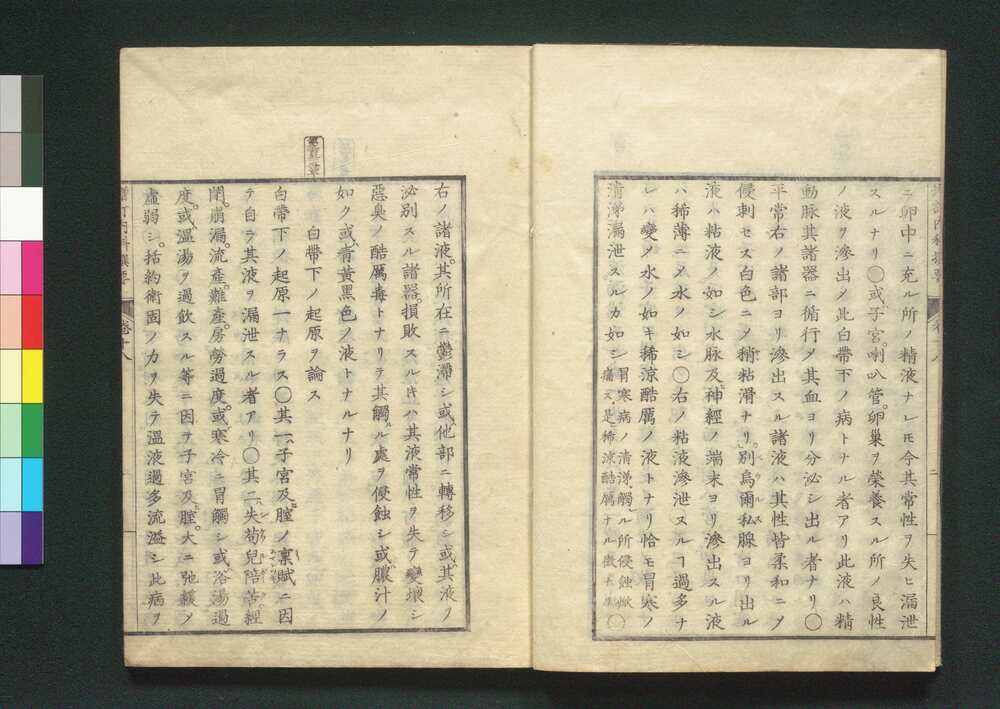 ニ卵中ニ充ル所ノ精液ナレ𪜈今其常性ヲ失ヒ漏泄
スルナリ○或子宮。喇叭管。卵巣ヲ榮養スル所ノ良性
ノ液ヲ滲出乄此白帶下ノ病トナル者アリ此液ハ精
動脉其諸器ニ循行乄其血ヨリ分泌シ出ル者ナリ○
平常右ノ諸部ヨリ滲出スル諸液ハ其性皆柔和ニ乄
侵刺セス白色ニ乄稍粘滑ナリ。別烏爾私腺ヨリ出ル
液ハ粘液ノ如シ水脉及神經ノ端末ヨリ滲出スル液
ハ稀薄ニ乄水ノ如シ○右ノ粘液滲泄スルヿ過多ナ
レハ變乄水ノ如キ稀涼酷厲ノ液トナリ恰モ冒寒ノ
清涕漏泄スルカ如シ
冒寒病ノ清涕觸ル所侵蝕焮
痛ス是稀涼酷厲ナルノ徴
○
増訂内科撰要
卷十八
右ノ諸液。其所在ニ鬱滯シ或他部ニ轉移シ或其液ノ
泌別スル諸器。損敗スルキハ其液常性ヲ失テ變壞シ
惡臭ノ酷厲毒トナリテ其觸ル處ヲ侵蝕シ或膿汁ノ
如ク或青黃黑色ノ液トナルナリ
白帶下ノ起原ヲ論ス
白帶下ノ起原一ナラス○其一ハ子宮及腟ノ稟賦ニ因
テ自ラ其液ヲ漏泄スル者アリ○其二ハ失苟兒陪苦。經
閉。崩漏。流產。難產。房勞過度。或寒冷ニ冒觸シ或浴湯過
度。或溫湯ヲ過飮スル等ニ因テ子宮及腟。大ニ弛緩乄
虛弱シ。括約衛固ノ力ヲ失テ溫液過多流溢シ此病ヲ
増訂内科撰要
卷十八